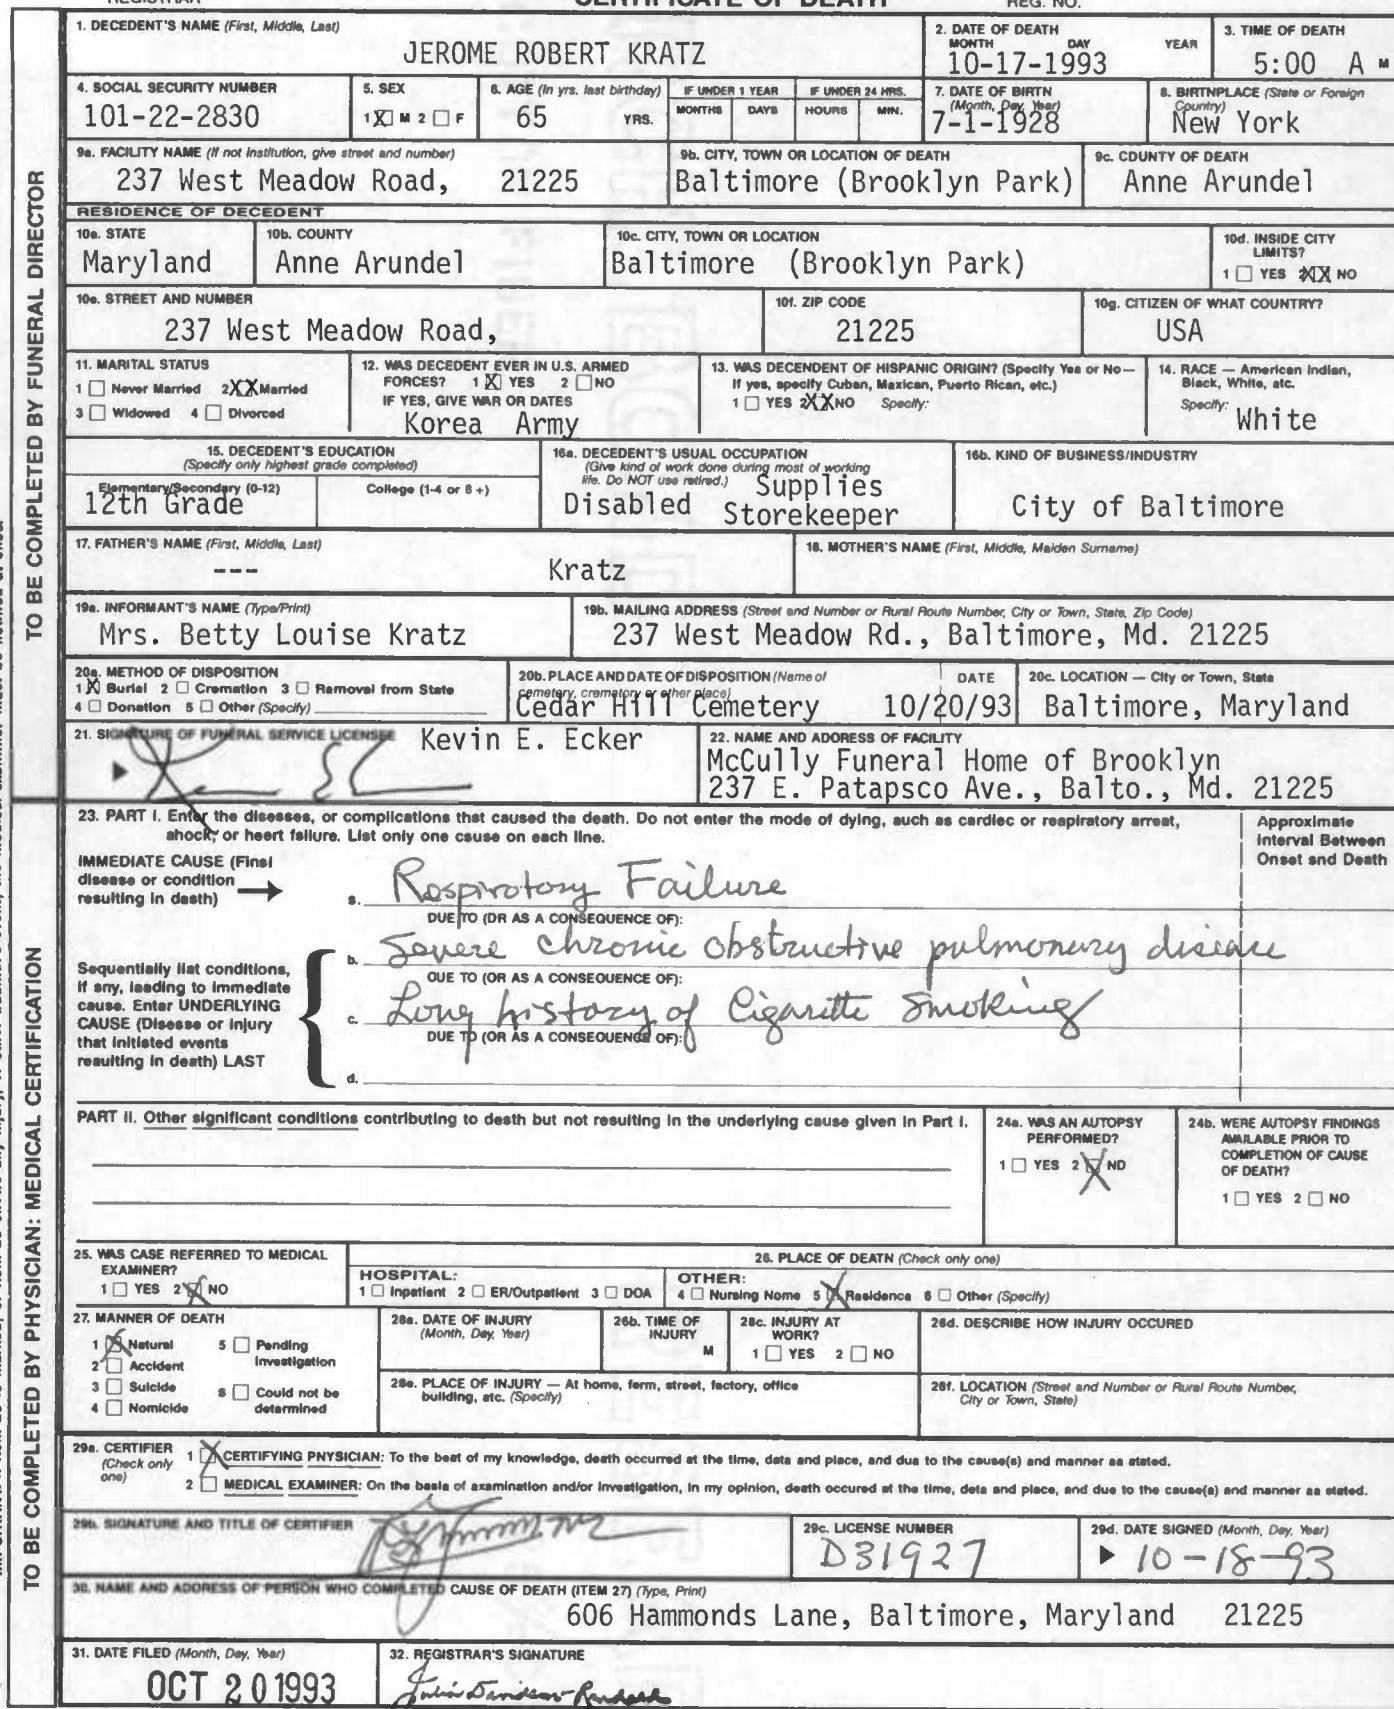 CERTIFICATE OF DEATH
REGISTRAR
REG. NO.
1. DECEDENT'S NAME (First, Middle, Last)
JEROME ROBERT KRATZ
2. DATE OF DEATH
MONTH DAY YEAR
10-17-1993
3. TIME OF DEATH
5:00 A M
4. SOCIAL SECURITY NUMBER
101-22-2830
5. SEX
1 X M 2 □ F
6. AGE (In yrs. last birthday)
65 YRS.
IF UNDER 1 YEAR
MONTHS DAYS
IF UNDER 24 HRS.
HOURS MIN.
7. DATE OF BIRTH
(Month, Day, Year)
7-1-1928
8. BIRTHPLACE (State or Foreign Country)
New York
9a. FACILITY NAME (If not institution, give street and number)
237 West Meadow Road, 21225
9b. CITY, TOWN OR LOCATION OF DEATH
Baltimore (Brooklyn Park)
9c. COUNTY OF DEATH
Anne Arundel
RESIDENCE OF DECEDENT
10a. STATE
Maryland
10b. COUNTY
Anne Arundel
10c. CITY, TOWN OR LOCATION
Baltimore (Brooklyn Park)
10d. INSIDE CITY LIMITS?
1 □ YES 2XX NO
10e. STREET AND NUMBER
237 West Meadow Road,
10f. ZIP CODE
21225
10g. CITIZEN OF WHAT COUNTRY?
USA
11. MARITAL STATUS
1 □ Never Married 2XX Married
3 □ Widowed 4 □ Divorced
12. WAS DECEDENT EVER IN U.S. ARMED
FORCES? 1 X YES 2 □ NO
IF YES, GIVE WAR OR DATES
Korea Army
13. WAS DECENDENT OF HISPANIC ORIGIN? (Specify Yes or No—
If yes, specify Cuban, Mexican, Puerto Rican, etc.)
1 □ YES 2XX NO Specify:
14. RACE — American Indian,
Black, White, etc.
Specify: White
15. DECEDENT'S EDUCATION
(Specify only highest grade completed)
Elementary/Secondary (0-12)
12th Grade
College (1-4 or 5 +)
16a. DECEDENT'S USUAL OCCUPATION
(Give kind of work done during most of working
life. Do NOT use retired.)
Supplies
Disabled Storekeeper
16b. KIND OF BUSINESS/INDUSTRY
City of Baltimore
17. FATHER'S NAME (First, Middle, Last)
--- Kratz
18. MOTHER'S NAME (First, Middle, Maiden Surname)
19a. INFORMANT'S NAME (Type/Print)
Mrs. Betty Louise Kratz
19b. MAILING ADDRESS (Street and Number or Rural Route Number, City or Town, State, Zip Code)
237 West Meadow Rd., Baltimore, Md. 21225
20a. METHOD OF DISPOSITION
1 X Burial 2 □ Cremation 3 □ Removal from State
4 □ Donation 5 □ Other (Specify)
20b. PLACE AND DATE OF DISPOSITION (Name of
cemetery, crematory or other place) DATE
Cedar Hill Cemetery 10/20/93
20c. LOCATION — City or Town, State
Baltimore, Maryland
21. SIGNATURE OF FUNERAL SERVICE LICENSEE
Kevin E. Ecker
22. NAME AND ADDRESS OF FACILITY
McCully Funeral Home of Brooklyn
237 E. Patapsco Ave., Balto., Md. 21225
TO BE COMPLETED BY FUNERAL DIRECTOR
23. PART I. Enter the diseases, or complications that caused the death. Do not enter the mode of dying, such as cardiac or respiratory arrest,
shock, or heart failure. List only one cause on each line.
Approximate
Interval Between
Onset and Death
IMMEDIATE CAUSE (Final
disease or condition
resulting in death)
a. Respiratory Failure
DUE TO (OR AS A CONSEQUENCE OF):
b. Severe chronic obstructive pulmonary disease
DUE TO (OR AS A CONSEQUENCE OF):
c. Long history of Cigarette Smoking
DUE TO (OR AS A CONSEQUENCE OF):
d.
Sequentially list conditions,
if any, leading to immediate
cause. Enter UNDERLYING
CAUSE (Disease or injury
that initiated events
resulting in death) LAST
PART II. Other significant conditions contributing to death but not resulting in the underlying cause given in Part I.
24a. WAS AN AUTOPSY
PERFORMED?
1 □ YES 2 X NO
24b. WERE AUTOPSY FINDINGS
AVAILABLE PRIOR TO
COMPLETION OF CAUSE
OF DEATH?
1 □ YES 2 □ NO
25. WAS CASE REFERRED TO MEDICAL
EXAMINER?
1 □ YES 2 X NO
26. PLACE OF DEATH (Check only one)
HOSPITAL:
1 □ Inpatient 2 □ ER/Outpatient 3 □ DOA
OTHER:
4 □ Nursing Home 5 X Residence 6 □ Other (Specify)
27. MANNER OF DEATH
1 X Natural 5 □ Pending Investigation
2 □ Accident
3 □ Suicide 6 □ Could not be determined
4 □ Homicide
28a. DATE OF INJURY
(Month, Day, Year)
28b. TIME OF
INJURY
M
28c. INJURY AT
WORK?
1 □ YES 2 □ NO
28d. DESCRIBE HOW INJURY OCCURED
28e. PLACE OF INJURY — At home, farm, street, factory, office
building, etc. (Specify)
28f. LOCATION (Street and Number or Rural Route Number,
City or Town, State)
29a. CERTIFIER
(Check only
one)
1 X CERTIFYING PHYSICIAN: To the best of my knowledge, death occurred at the time, date and place, and due to the cause(s) and manner as stated.
2 □ MEDICAL EXAMINER: On the basis of examination and/or investigation, in my opinion, death occured at the time, date and place, and due to the cause(s) and manner as stated.
29b. SIGNATURE AND TITLE OF CERTIFIER
29c. LICENSE NUMBER
D31927
29d. DATE SIGNED (Month, Day, Year)
10-18-93
30. NAME AND ADDRESS OF PERSON WHO COMPLETED CAUSE OF DEATH (ITEM 27) (Type, Print)
606 Hammonds Lane, Baltimore, Maryland 21225
31. DATE FILED (Month, Day, Year)
OCT 20 1993
32. REGISTRAR'S SIGNATURE
TO BE COMPLETED BY PHYSICIAN: MEDICAL CERTIFICATION